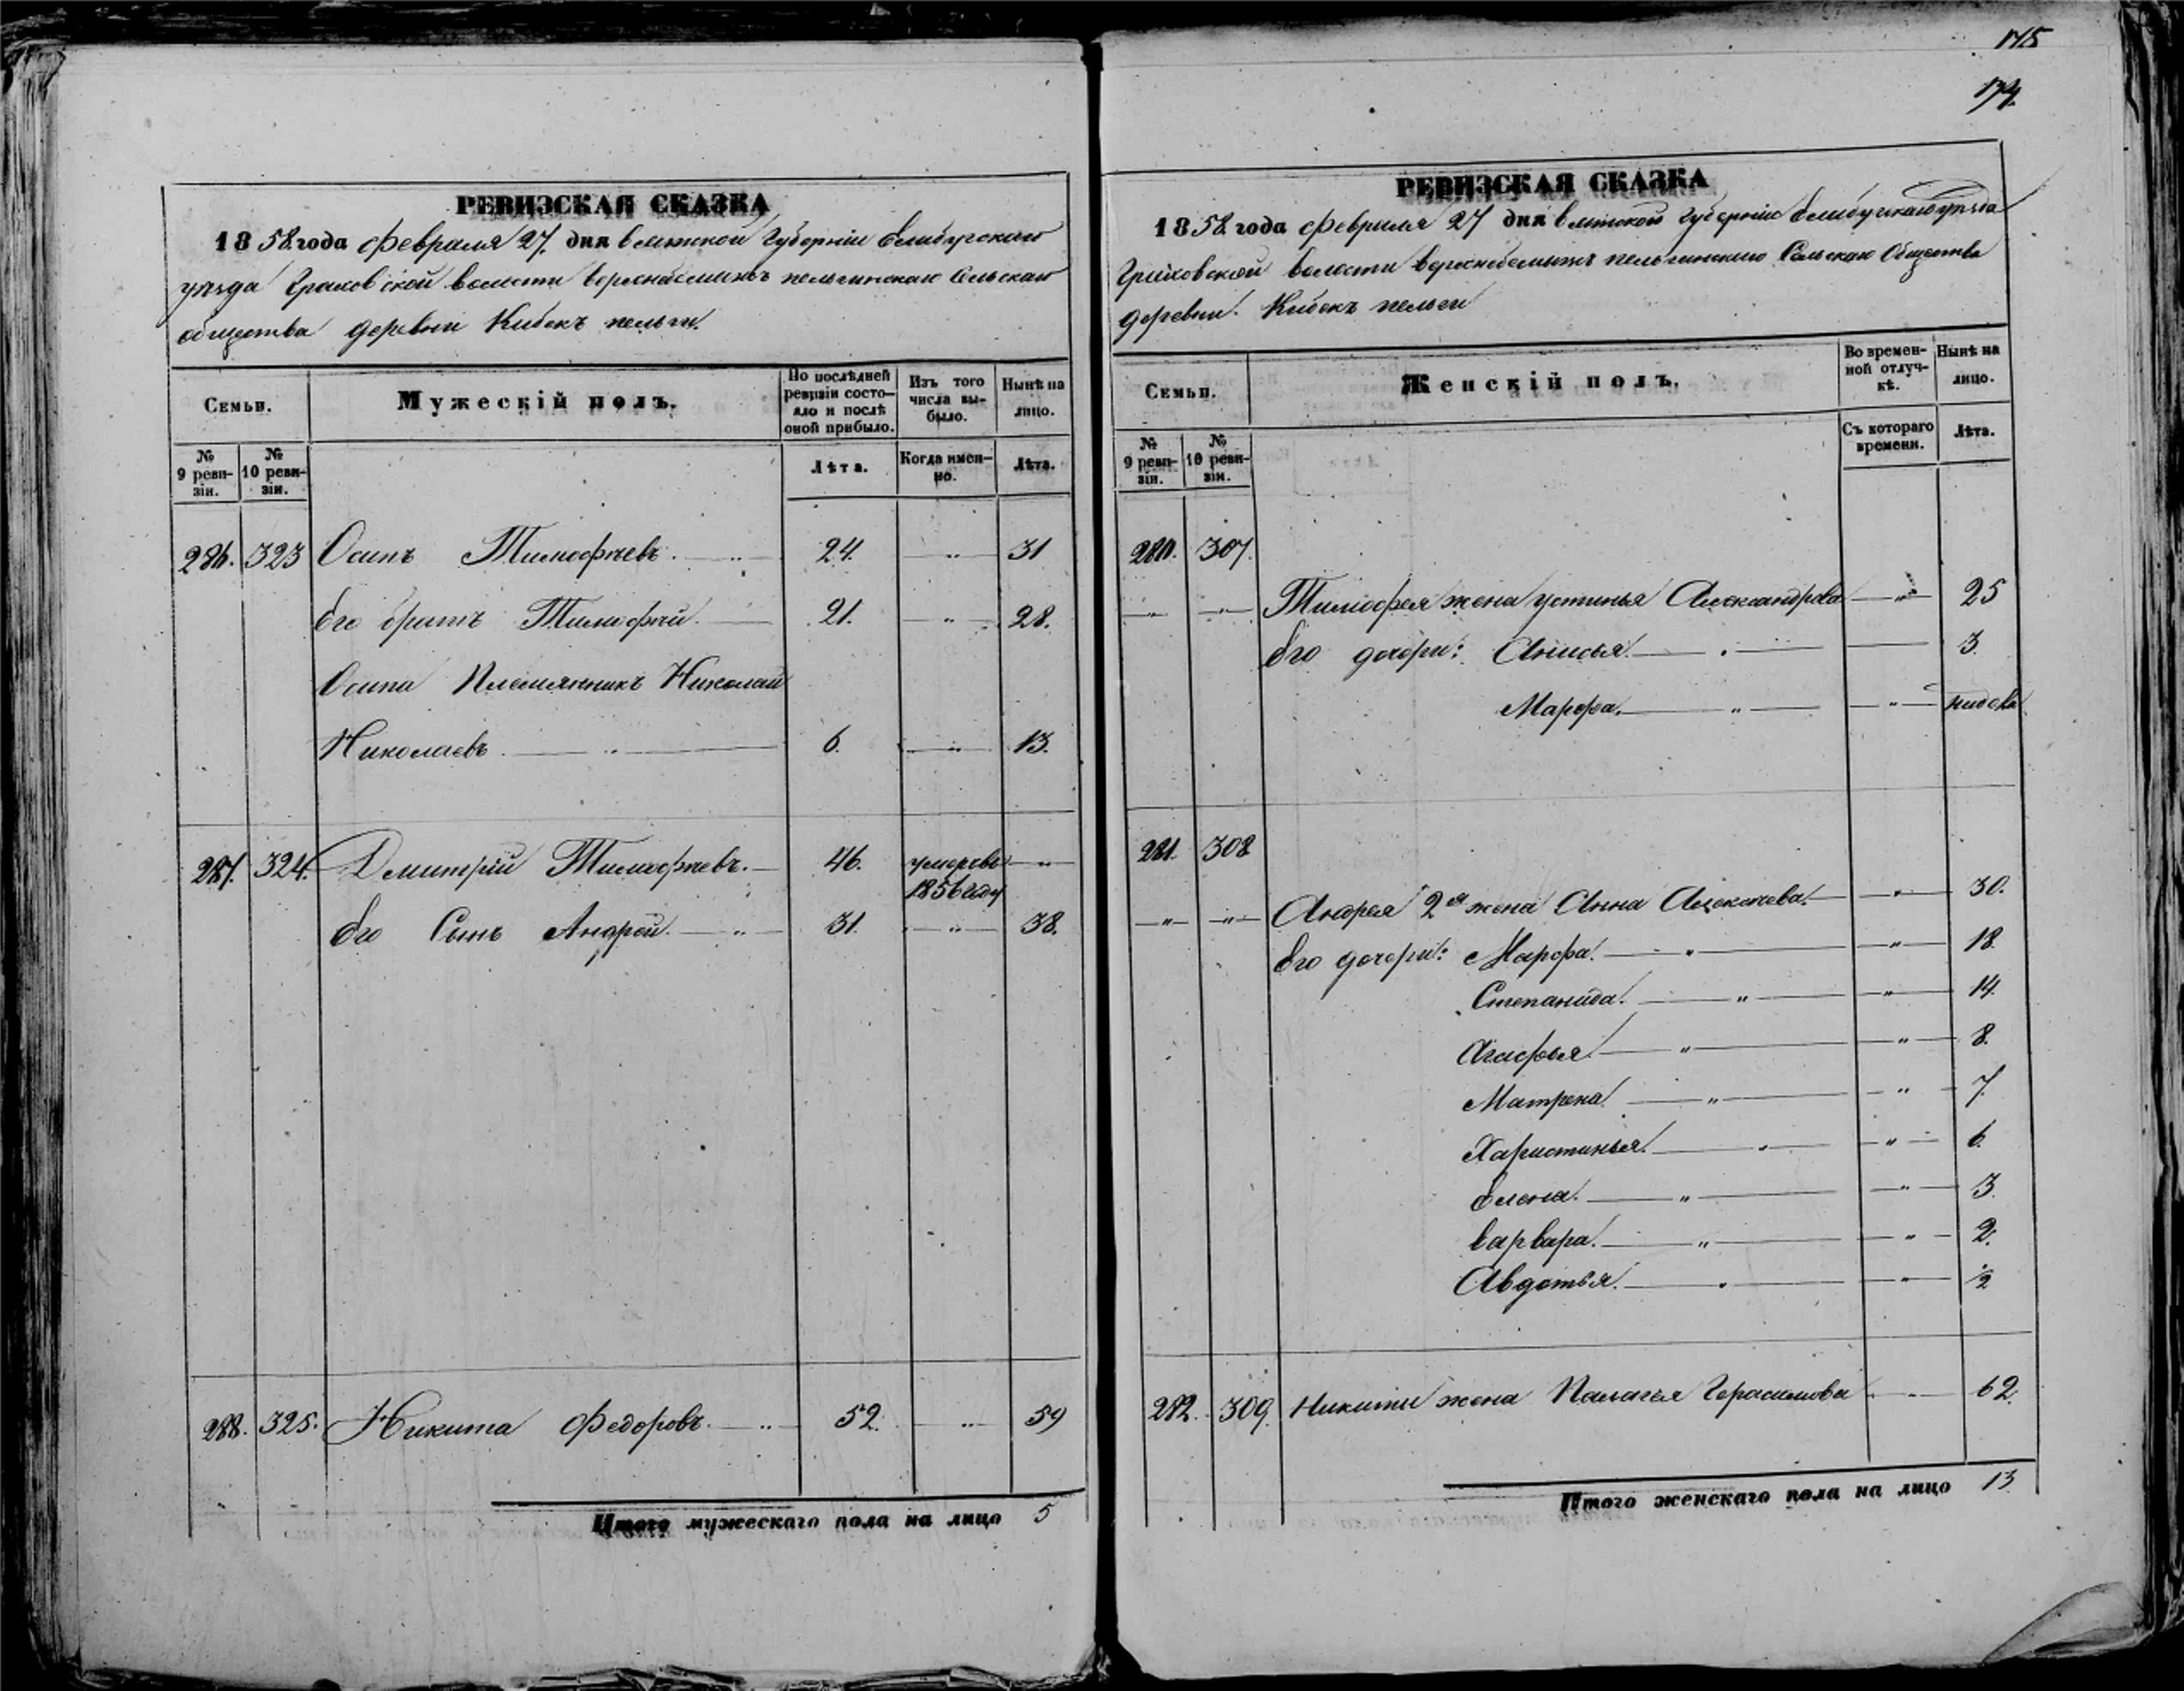 175
174.
РЕВИЗСКАЯ СКАЗКА
1858 года февраля 27. дня вятской губерніи Елабугскаго
уѣзда Граховской волости пельгинскаго сельскаго
общества деревни Кибекъ пельги.
Семьи.
Мужескій полъ.
По послѣдней ревизіи состояло и послѣ оной прибыло.
Изъ того числа выбыло.
Нынѣ на лицо.
№ 9 ревизіи.
№ 10 ревизіи.
Лѣта.
Когда именно.
Лѣта.
286. 323 Осипъ Тимофѣевъ. — „ — 24. „ — 31
Его братъ Тимофѣй. — 21. — „ — 28.
Осипа Племянникъ Николай
Николаевъ. — „ — 6. — „ — 13.
287. 324. Дмитрій Тимофѣевъ. — 46. умеръ въ — „
1856 году
Его Сынъ Андрей. — „ — 31. — „ — 38.
288. 325. Никита Федоровъ. — „ — 52. „ 59
Итого мужескаго пола на лицо 5
РЕВИЗСКАЯ СКАЗКА
1858 года февраля 27 дня вятской губерніи Елабугскаго уѣзда
Граховской волости пельгинскаго Сельскаго Общества
деревни. Кибекъ пельги
Семьи.
Женскій полъ.
Во временной отлучкѣ.
Нынѣ на лицо.
№ 9 ревизіи.
№ 10 ревизіи.
Съ котораго времени.
Лѣта.
280. 307.
— „ — — „ — Тимофея жена устинья Александрова — „ — 25
Его дочери: Анисья. — „ — — 3.
Марфа. — „ — — „ — недели
281. 308
— „ — — „ — Андрея 2я жена Анна Алексѣева. — „ — 30.
Его дочери: Марфа. — „ — — „ — 18
Степанида. — „ — — „ — 14.
Агафья. — „ — — „ — 8.
Матрена. — „ — — „ — 7.
Харистинья. — „ — — „ — 6.
Елена. — „ — — „ — 3.
Варвара. — „ — — „ — 2.
Авдотья. — „ — — „ — ½
282. 309. Никиты жена Палагья Герасимова — „ — 62.
Итого женскаго пола на лицо 13